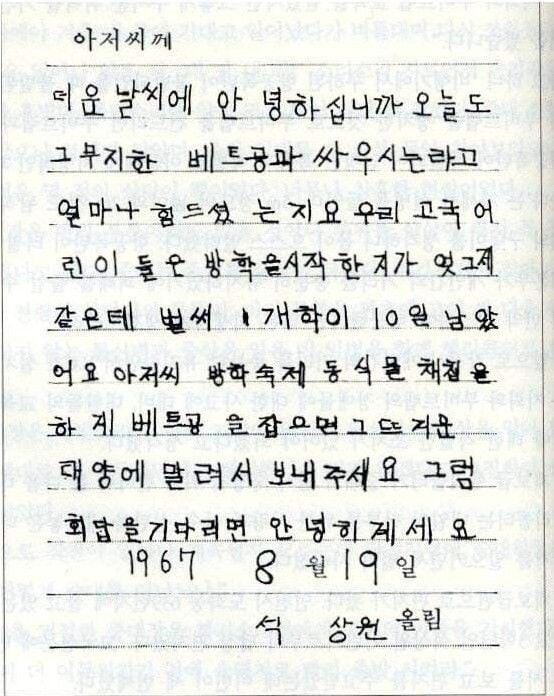 아저씨께
더운 날씨에 안녕하십니까 오늘도
그 무지한 베트콩과 싸우시느라고
얼마나 힘드셨는지요 우리 고국 어
린이들은 방학을 시작한지가 엊그제
같은데 벌써 개학이 10일 남았
어요 아저씨 방학숙제 동식물 채집을
하게 베트콩을 잡으면 그 뜨거운
태양에 말려서 보내주세요 그럼
회답을 기다리면 안녕히 계세요
1967 8월 19일
석 상원 올림